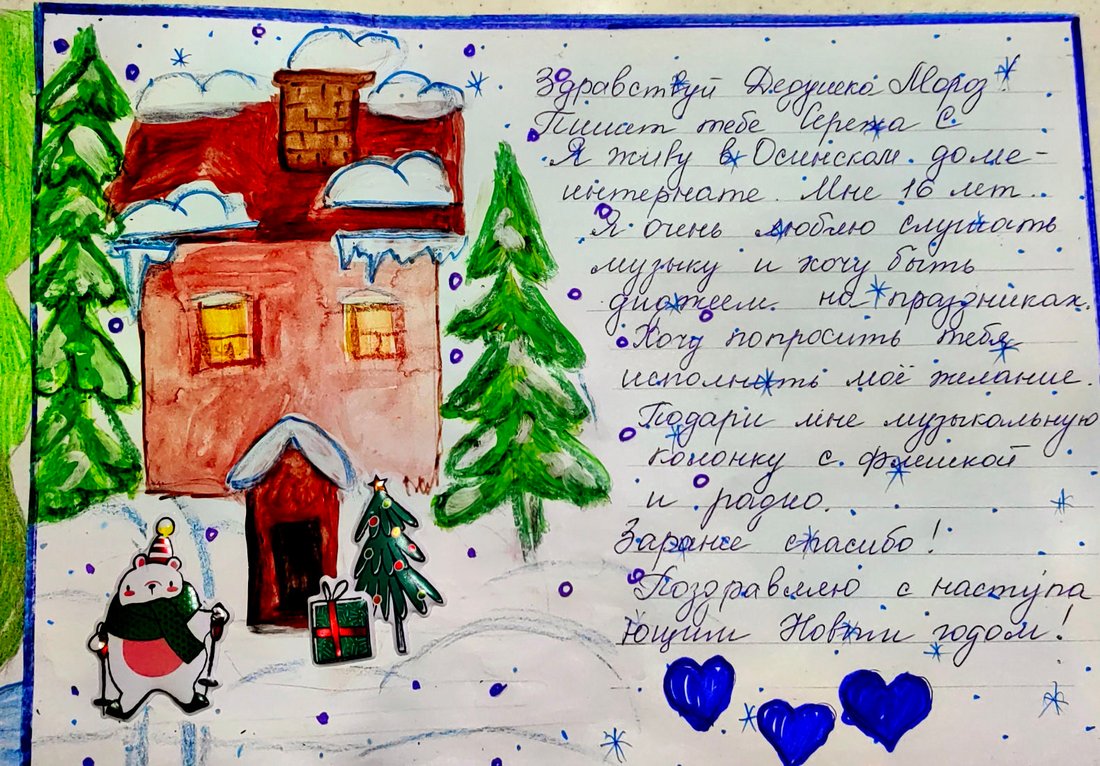 Здравствуй Дедушка Мороз!
Пишет тебе Сережа С.
Я живу в Осинском доме-
интернате. Мне 16 лет.
Я очень люблю слушать
музыку и хочу быть
диджеем на праздниках.
Хочу попросить тебя
исполнить моё желание.
Подари мне музыкальную
колонку с флешкой
и радио.
Заранее спасибо!
Поздравляю с наступа
ющим Новым годом!